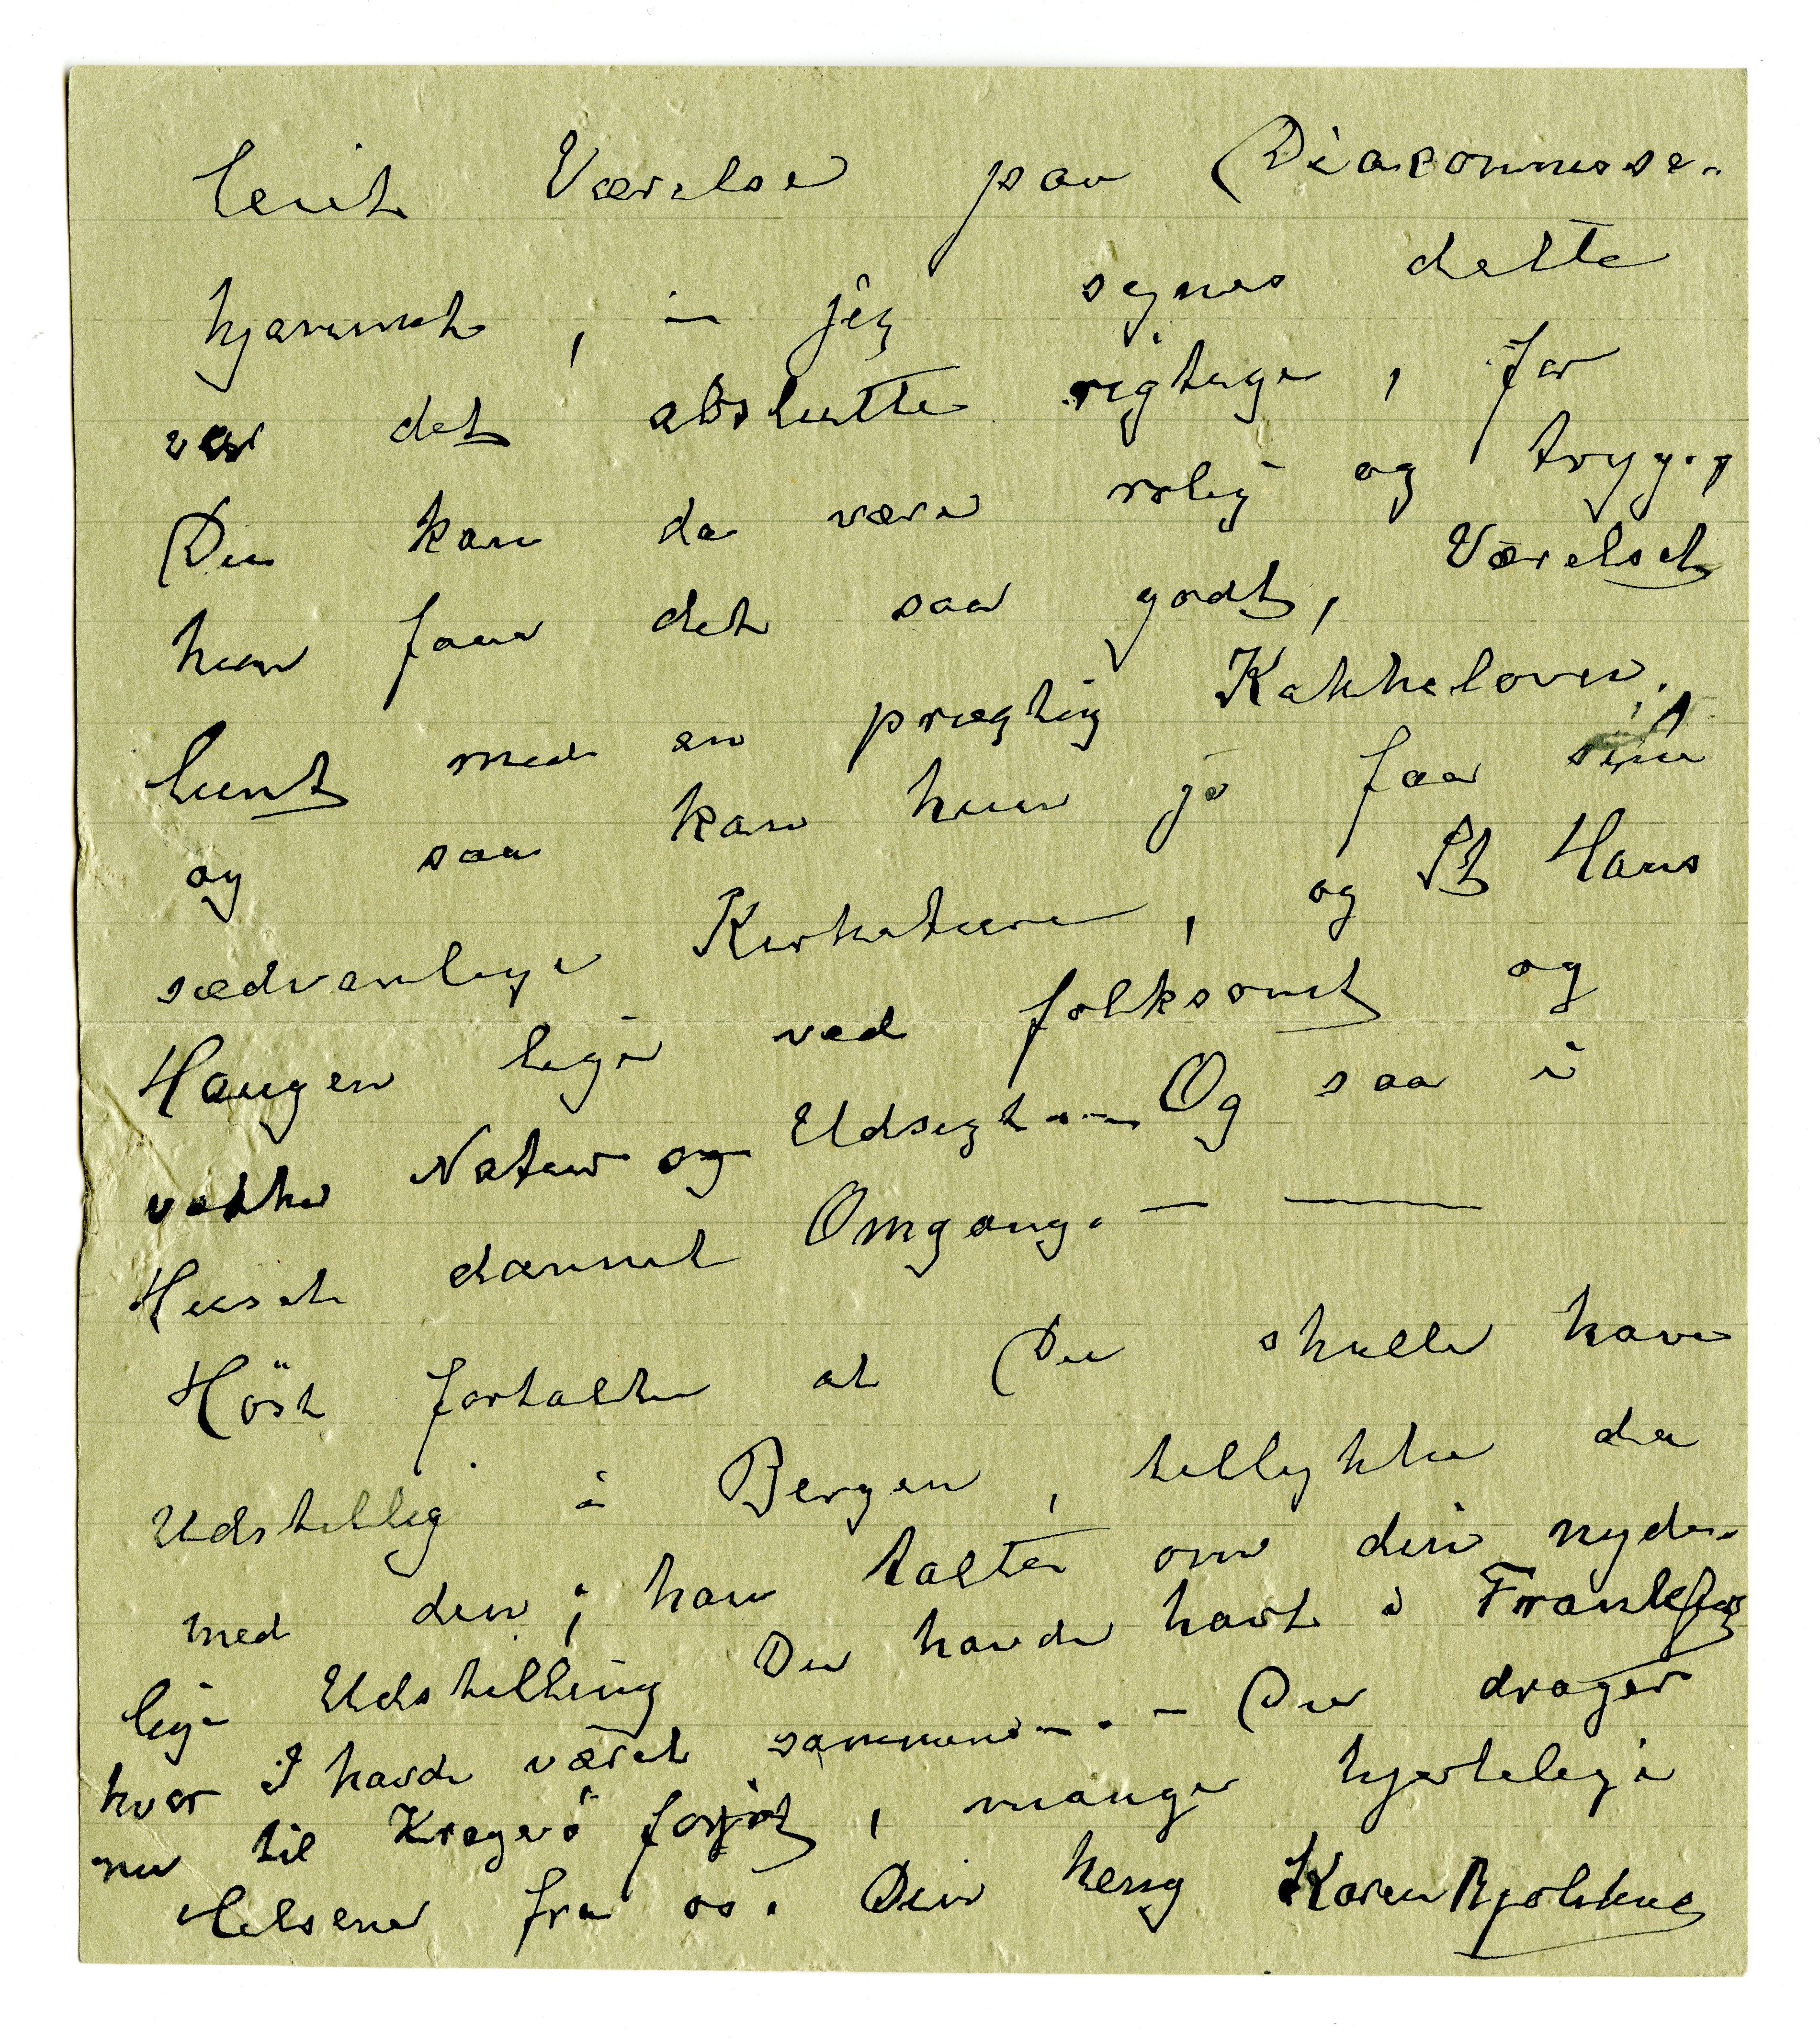 leiet Værelse paa Diaconnisse-
hjemmet, – jeg synes dette
var det absolutte rigtige, for
Du kan da være rolig og tryg.
hun faar det saa godt, Værelset
lunt med en prægtig Kakkelovn,
og saa kan hun jo faa sine
sædvanlige Kirketure, og St Hans
Haugen lige ved folksomt og
vakker Natur og Udsigt. – Og saa i
Huset dannet Omgang. — ——
Höst fortalte at Du skulle have
Udstillig i Bergen, tillykke da
med den; han talte om din nyde-
lige Udstilling Du havde havt i Frankfurt
hvor I havde været sammen. – . – Du drager
nu til Kragerö forjöt, mange hjertelige
Helsener fra os. Din heng Karen Bjölstad